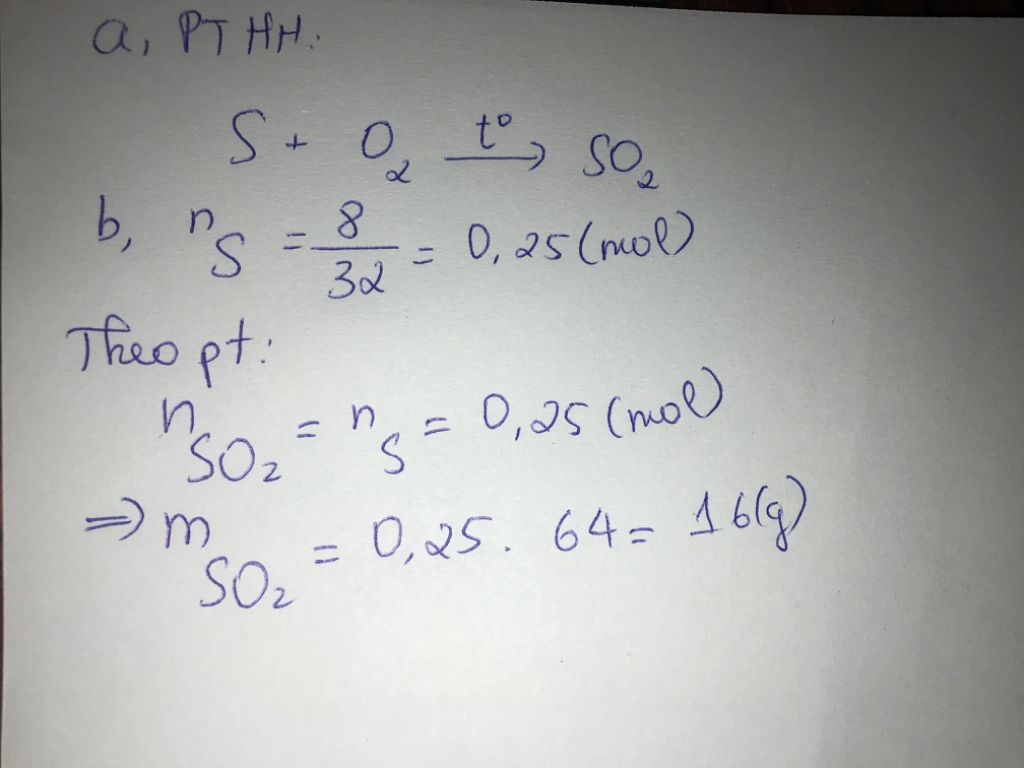 a, PTHH:
S + O₂ $\xrightarrow{t^o}$ SO₂
b, n_S = $\frac{8}{32}$ = 0,25(mol)
Theo pt:
n_{SO₂} = n_S = 0,25 (mol)
⇒ m_{SO₂} = 0,25 . 64 = 16(g)